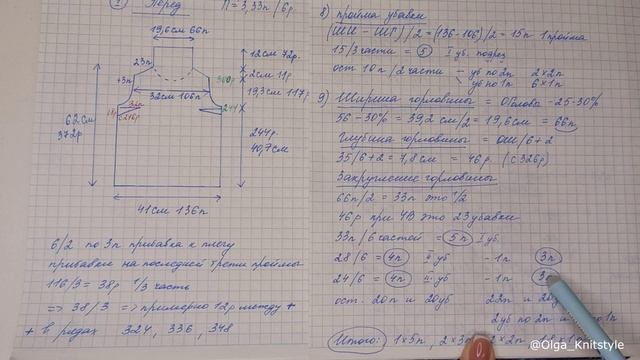 ① Перед П = 3,33п / 6р
19,6см 66п
23п
12см 72р.
+3п
2см 11р
32см 106п
19,3см 117р
62см
372р
244р.
40,7см
41см 136п
6/2 по 3п прибавка к плечу
прибавки на последней трети проймы
116/3 = 38р 1/3 часть
=> 38/3 => примерно 12р между +
+ в рядах 324, 336, 348
8) пройма убавки
(ШИ - ШГ)/2 = (136-106)/2 = 15п 1 пройма
15/3 части = 5 I уб. подрез
ост 10п / 2 части - уб по 2п 2х2п
уб по 1п 6х1п
9) Ширина горловины = ОГоловы - 25-30%
56 - 30% = 39,2 см/2 = 19,6см = 66п
Глубина горловины = ОШ/6+2
35/6+2 = 7,8 см = 46р. (с 326р)
Закругление горловины
66п/2 = 33п это 1/2
46р при 4В это 23 убавки
33п/6 частей = 5п I уб.
28/6 = 4п II уб - 1п 3п
24/6 = 4п II уб - 1п
ост. 20п и 20уб 22п и
2уб по 2п и 1п
Итого: 1х5п, 2х3п
@Olga_Knitstyle